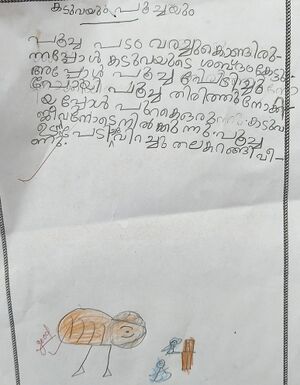 കടുവയും പൂച്ചയും
പൂച്ച പടം വരച്ചുകൊണ്ടിരു-
ന്നപ്പോൾ കടുവയുടെ ശബ്ദം കേട്ടു
അപ്പോൾ പൂച്ച പേടിച്ചു
പോയി പൂച്ച തിരിഞ്ഞുനോക്കി
യപ്പോൾ
ജീവനോടെ നിൽക്കുന്നു കടുവ
പൂച്ച
പേടിച്ച് വിറച്ചു തലകറങ്ങി വീ-
ണു.
good